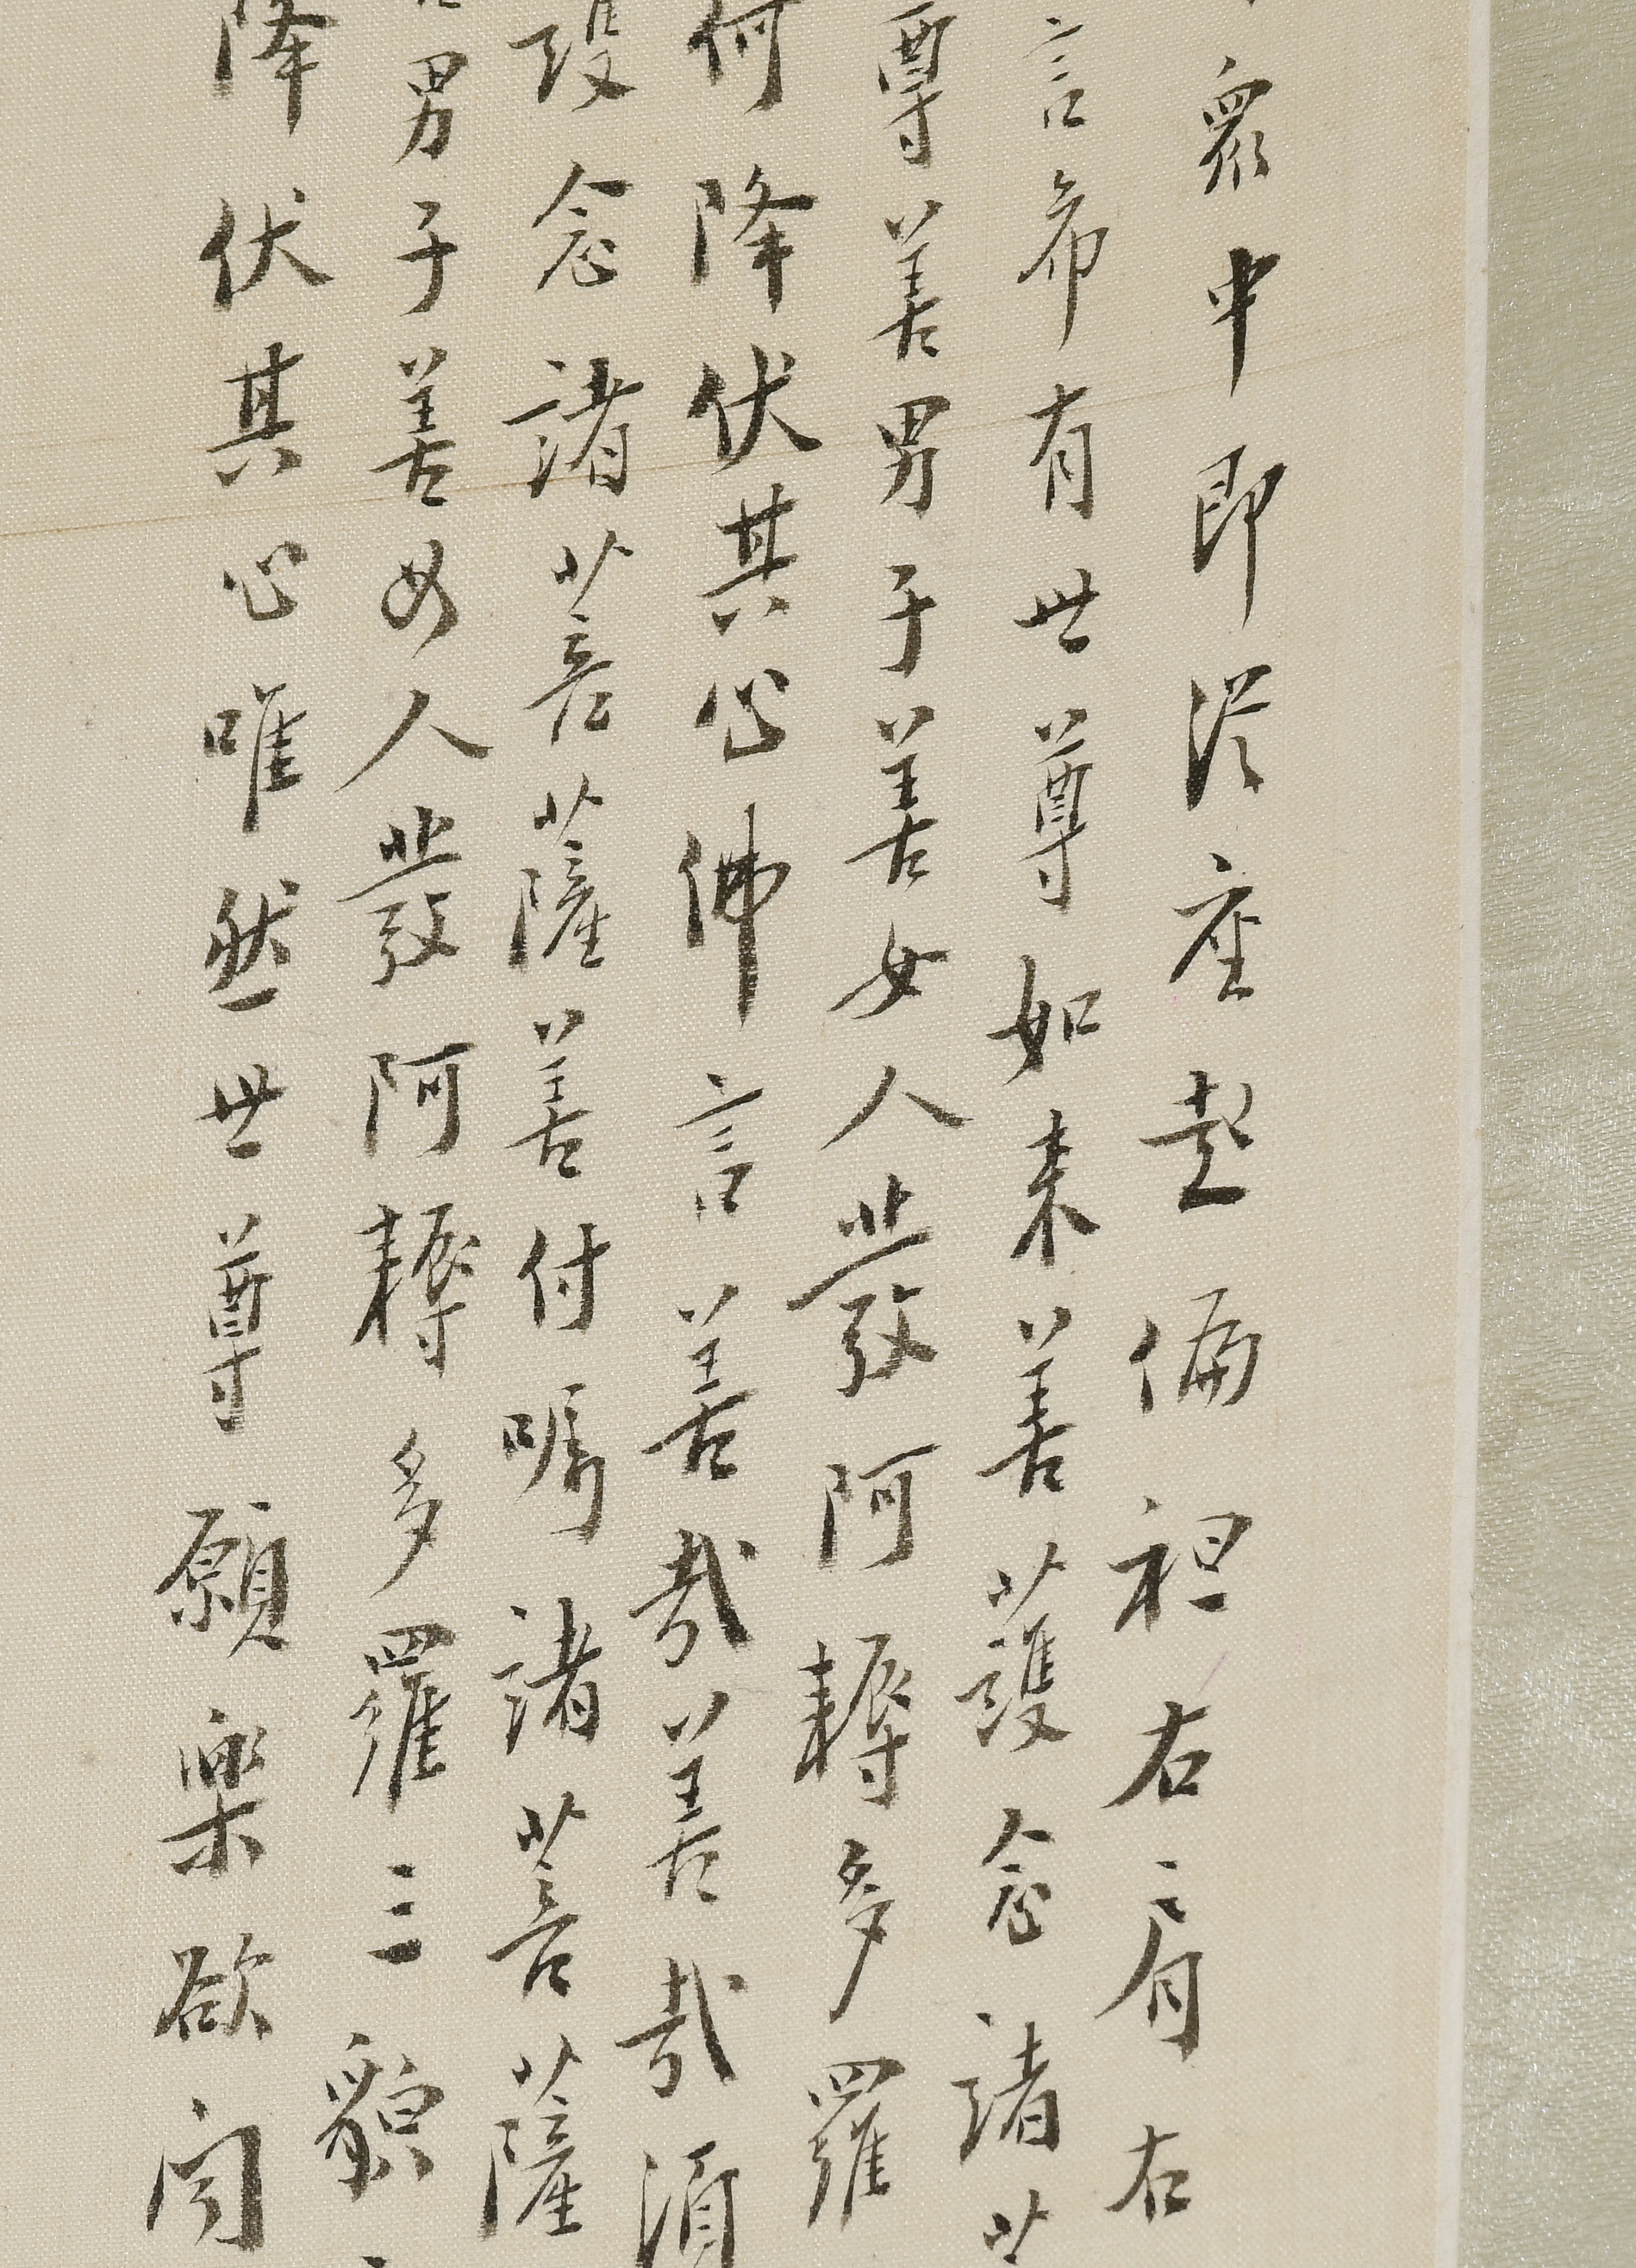 衆中即從座起偏袒右肩右
言希有世尊如來善護念諸菩
尊善男子善女人發阿耨多羅
何降伏其心佛言善哉善哉須
護念諸菩薩善付囑諸菩薩
男子善女人發阿耨多羅三藐
降伏其心唯然世尊願樂欲聞